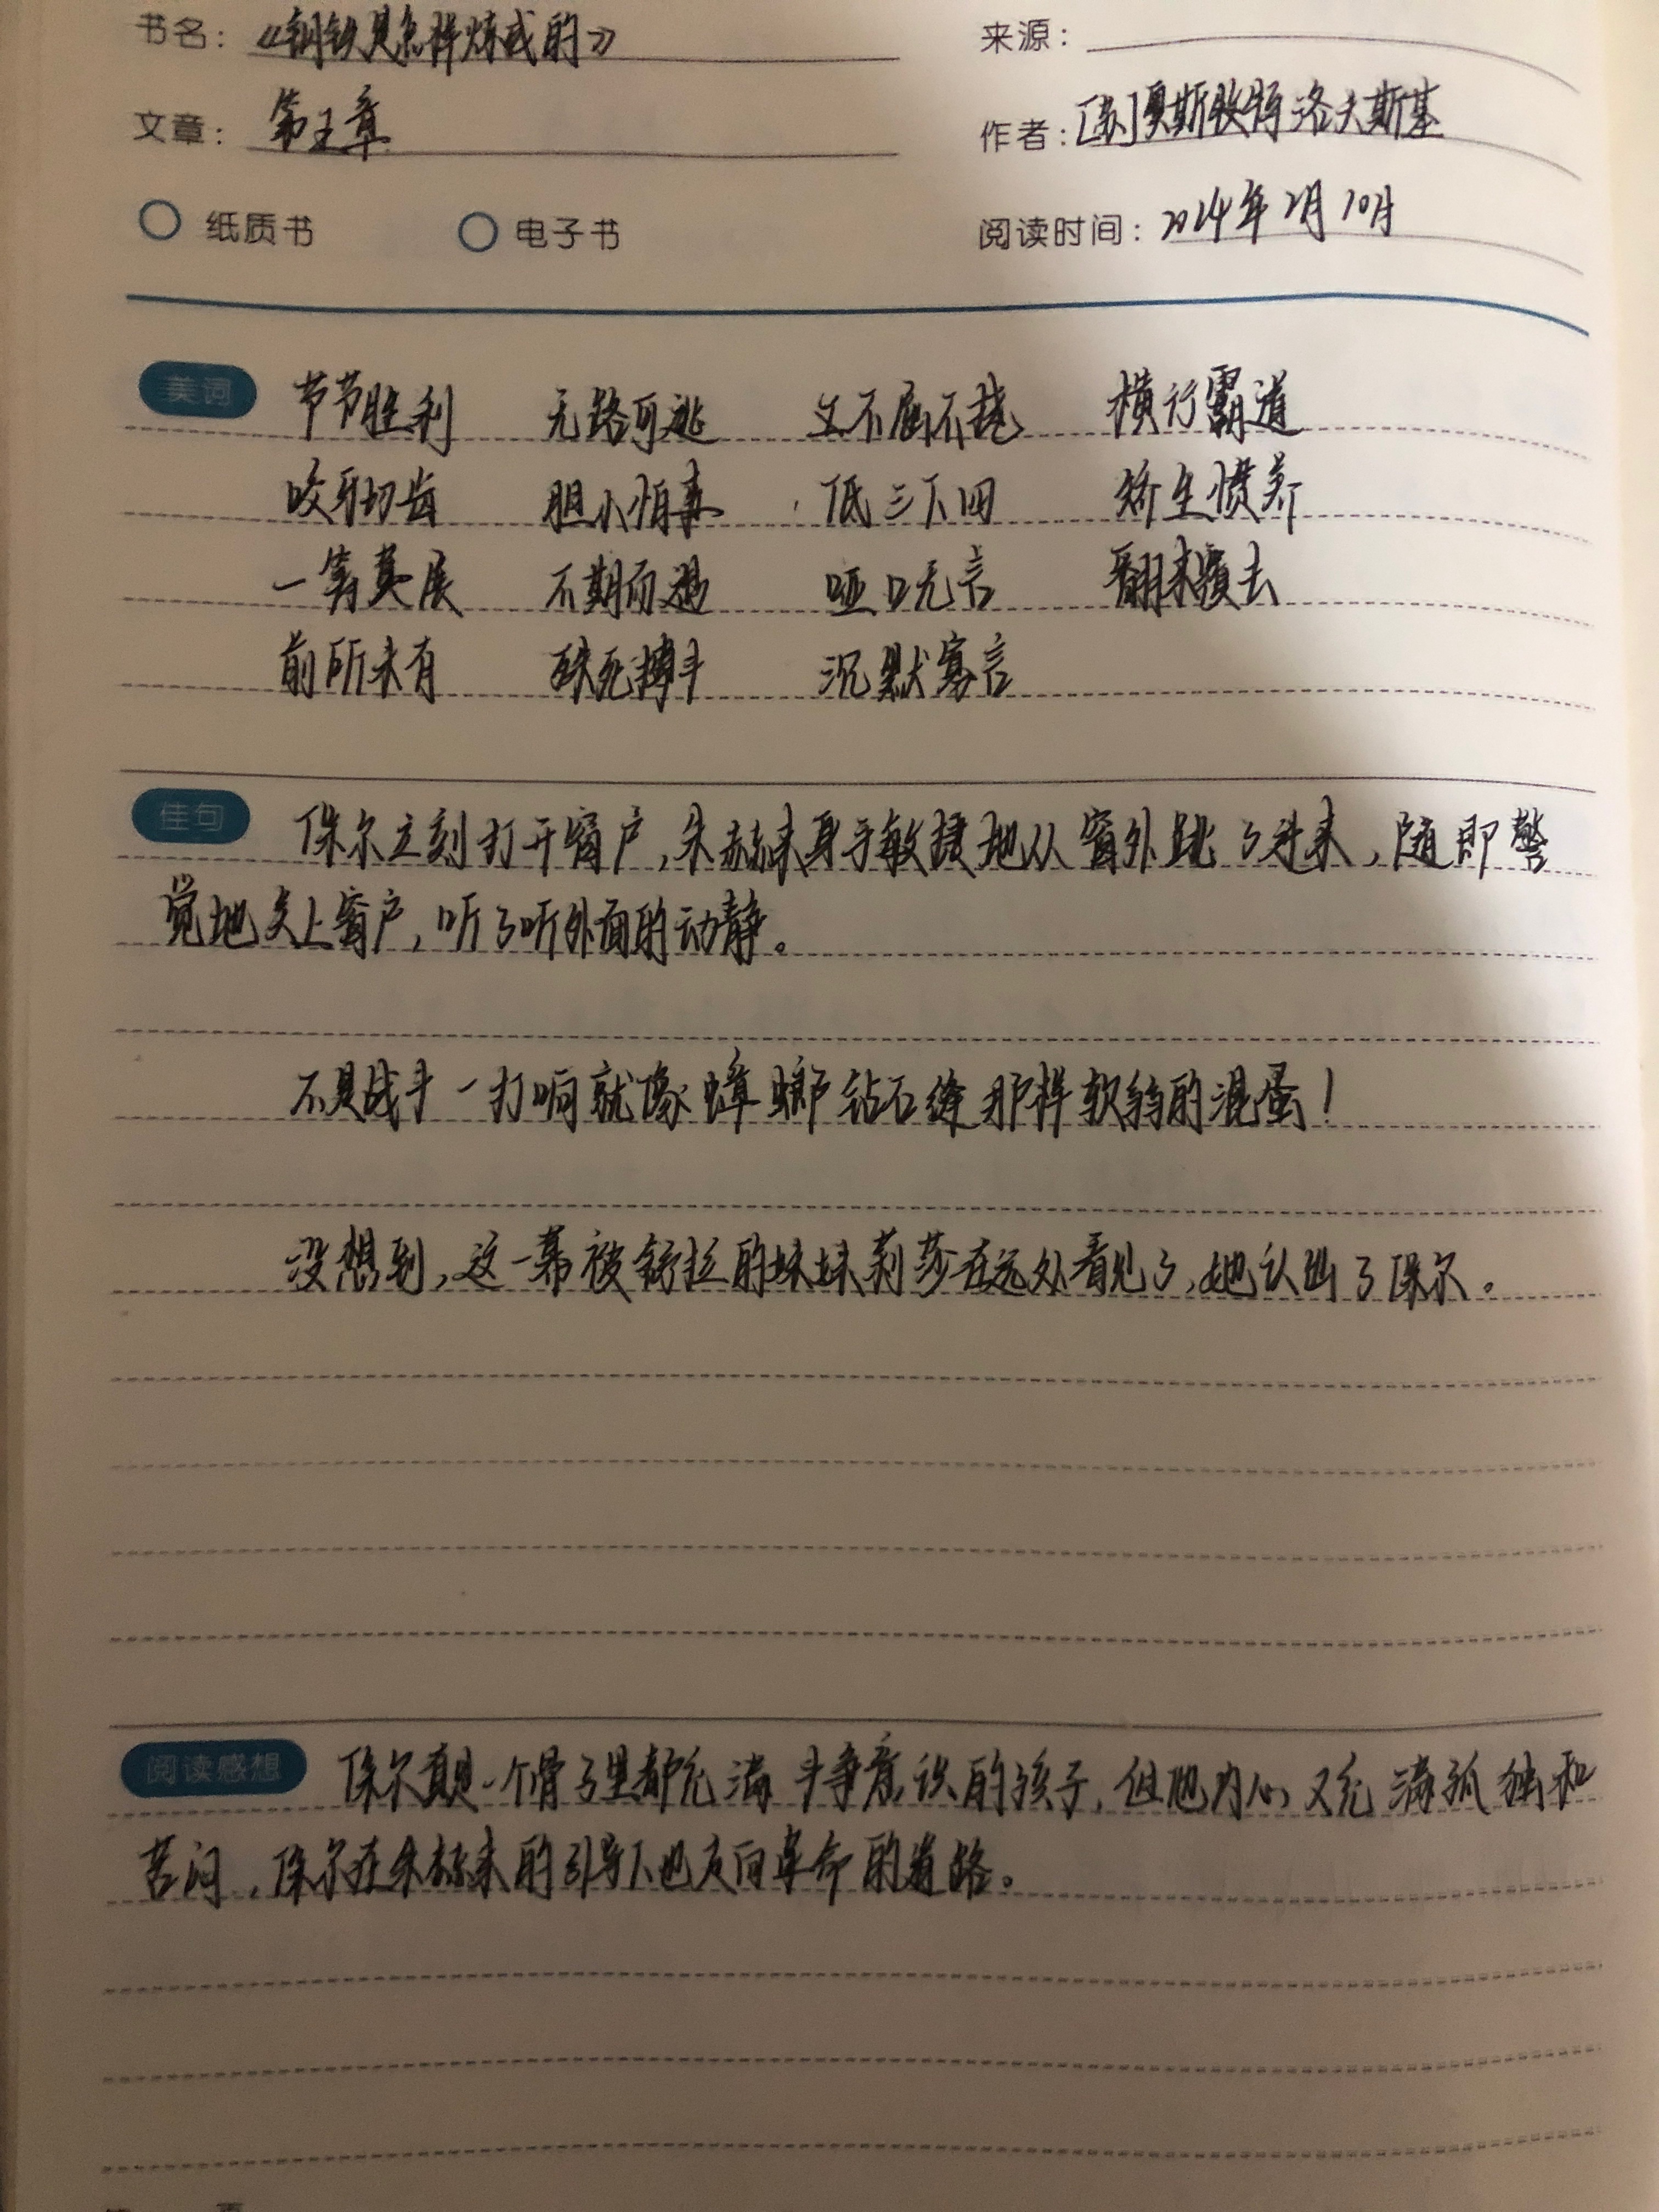 书名: 《钢铁是怎样炼成的》 来源:
文章: 第五章 作者: [苏]奥斯特洛夫斯基
纸质书 电子书 阅读时间: 2024年2月10月
美词 节节胜利 无路可逃 不屈不挠 横行霸道
咬牙切齿 胆小怕事 低三下四 娇生惯养
一筹莫展 不期而遇 哑口无言 翻来覆去
前所未有 殊死搏斗 沉默寡言
佳句 保尔立刻打开窗户,朱赫来身手敏捷地从窗外跳了进来,随即警
觉地关上窗户,听了听外面的动静。
不是战斗一打响就像蟑螂钻石缝那样软弱的混蛋!
没想到,这一幕被的妹妹莉莎在远处看见了,她认出了保尔。
阅读感想 保尔真是一个骨子里都充满斗争意识的孩子,但他内心又充满孤独和
苦闷,保尔在朱赫来的引导下也走向革命的道路。